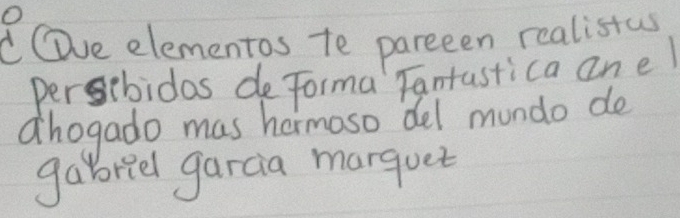 ¿Que elementos te pareeen realistas
persibidos de forma fantastica an el
ahogado mas hermoso del mundo de
gabriel garcia marquez